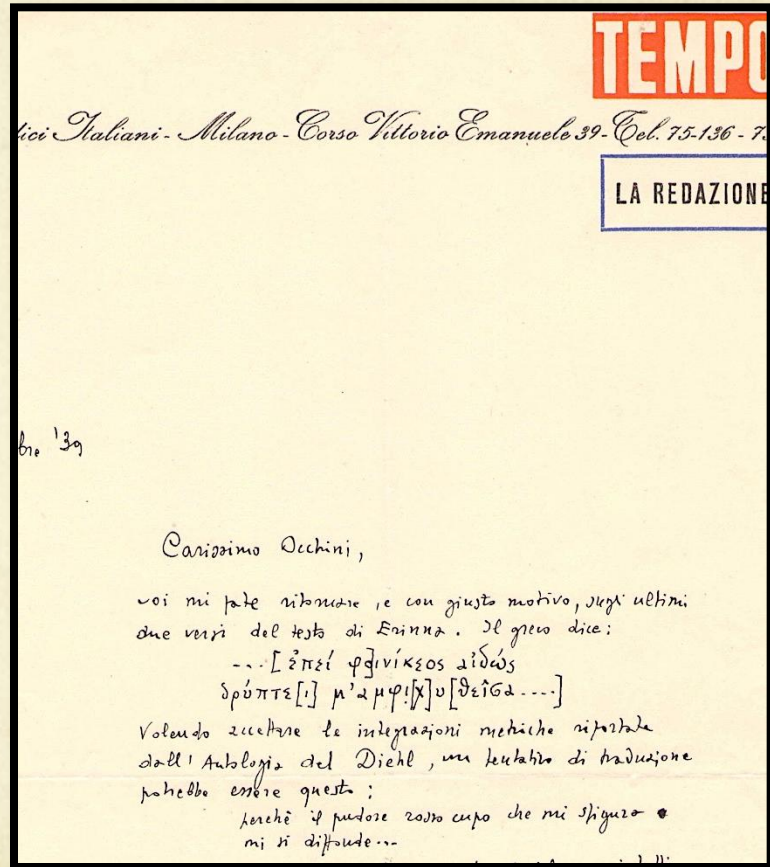 TEMPO
tici Italiani - Milano - Corso Vittorio Emanuele 39 - Tel. 75-136 - 7
LA REDAZIONE
bre '39
Carissimo Occhini,
voi mi fate ritornare, e con giusto motivo, sugli ultimi
due versi del testo di Erinna. Il greco dice:
---[ἐπεί φο]ινίκεος αἰδώς
δρύπτε[ι] μ' ἀμφι[χ]υ[θεῖσα ....]
Volendo accettare le integrazioni metriche riportate
dall'Antologia del Diehl, un tentativo di traduzione
potrebbe essere questo:
perchè il pudore rosso cupo che mi sfigura e
mi si diffonde...